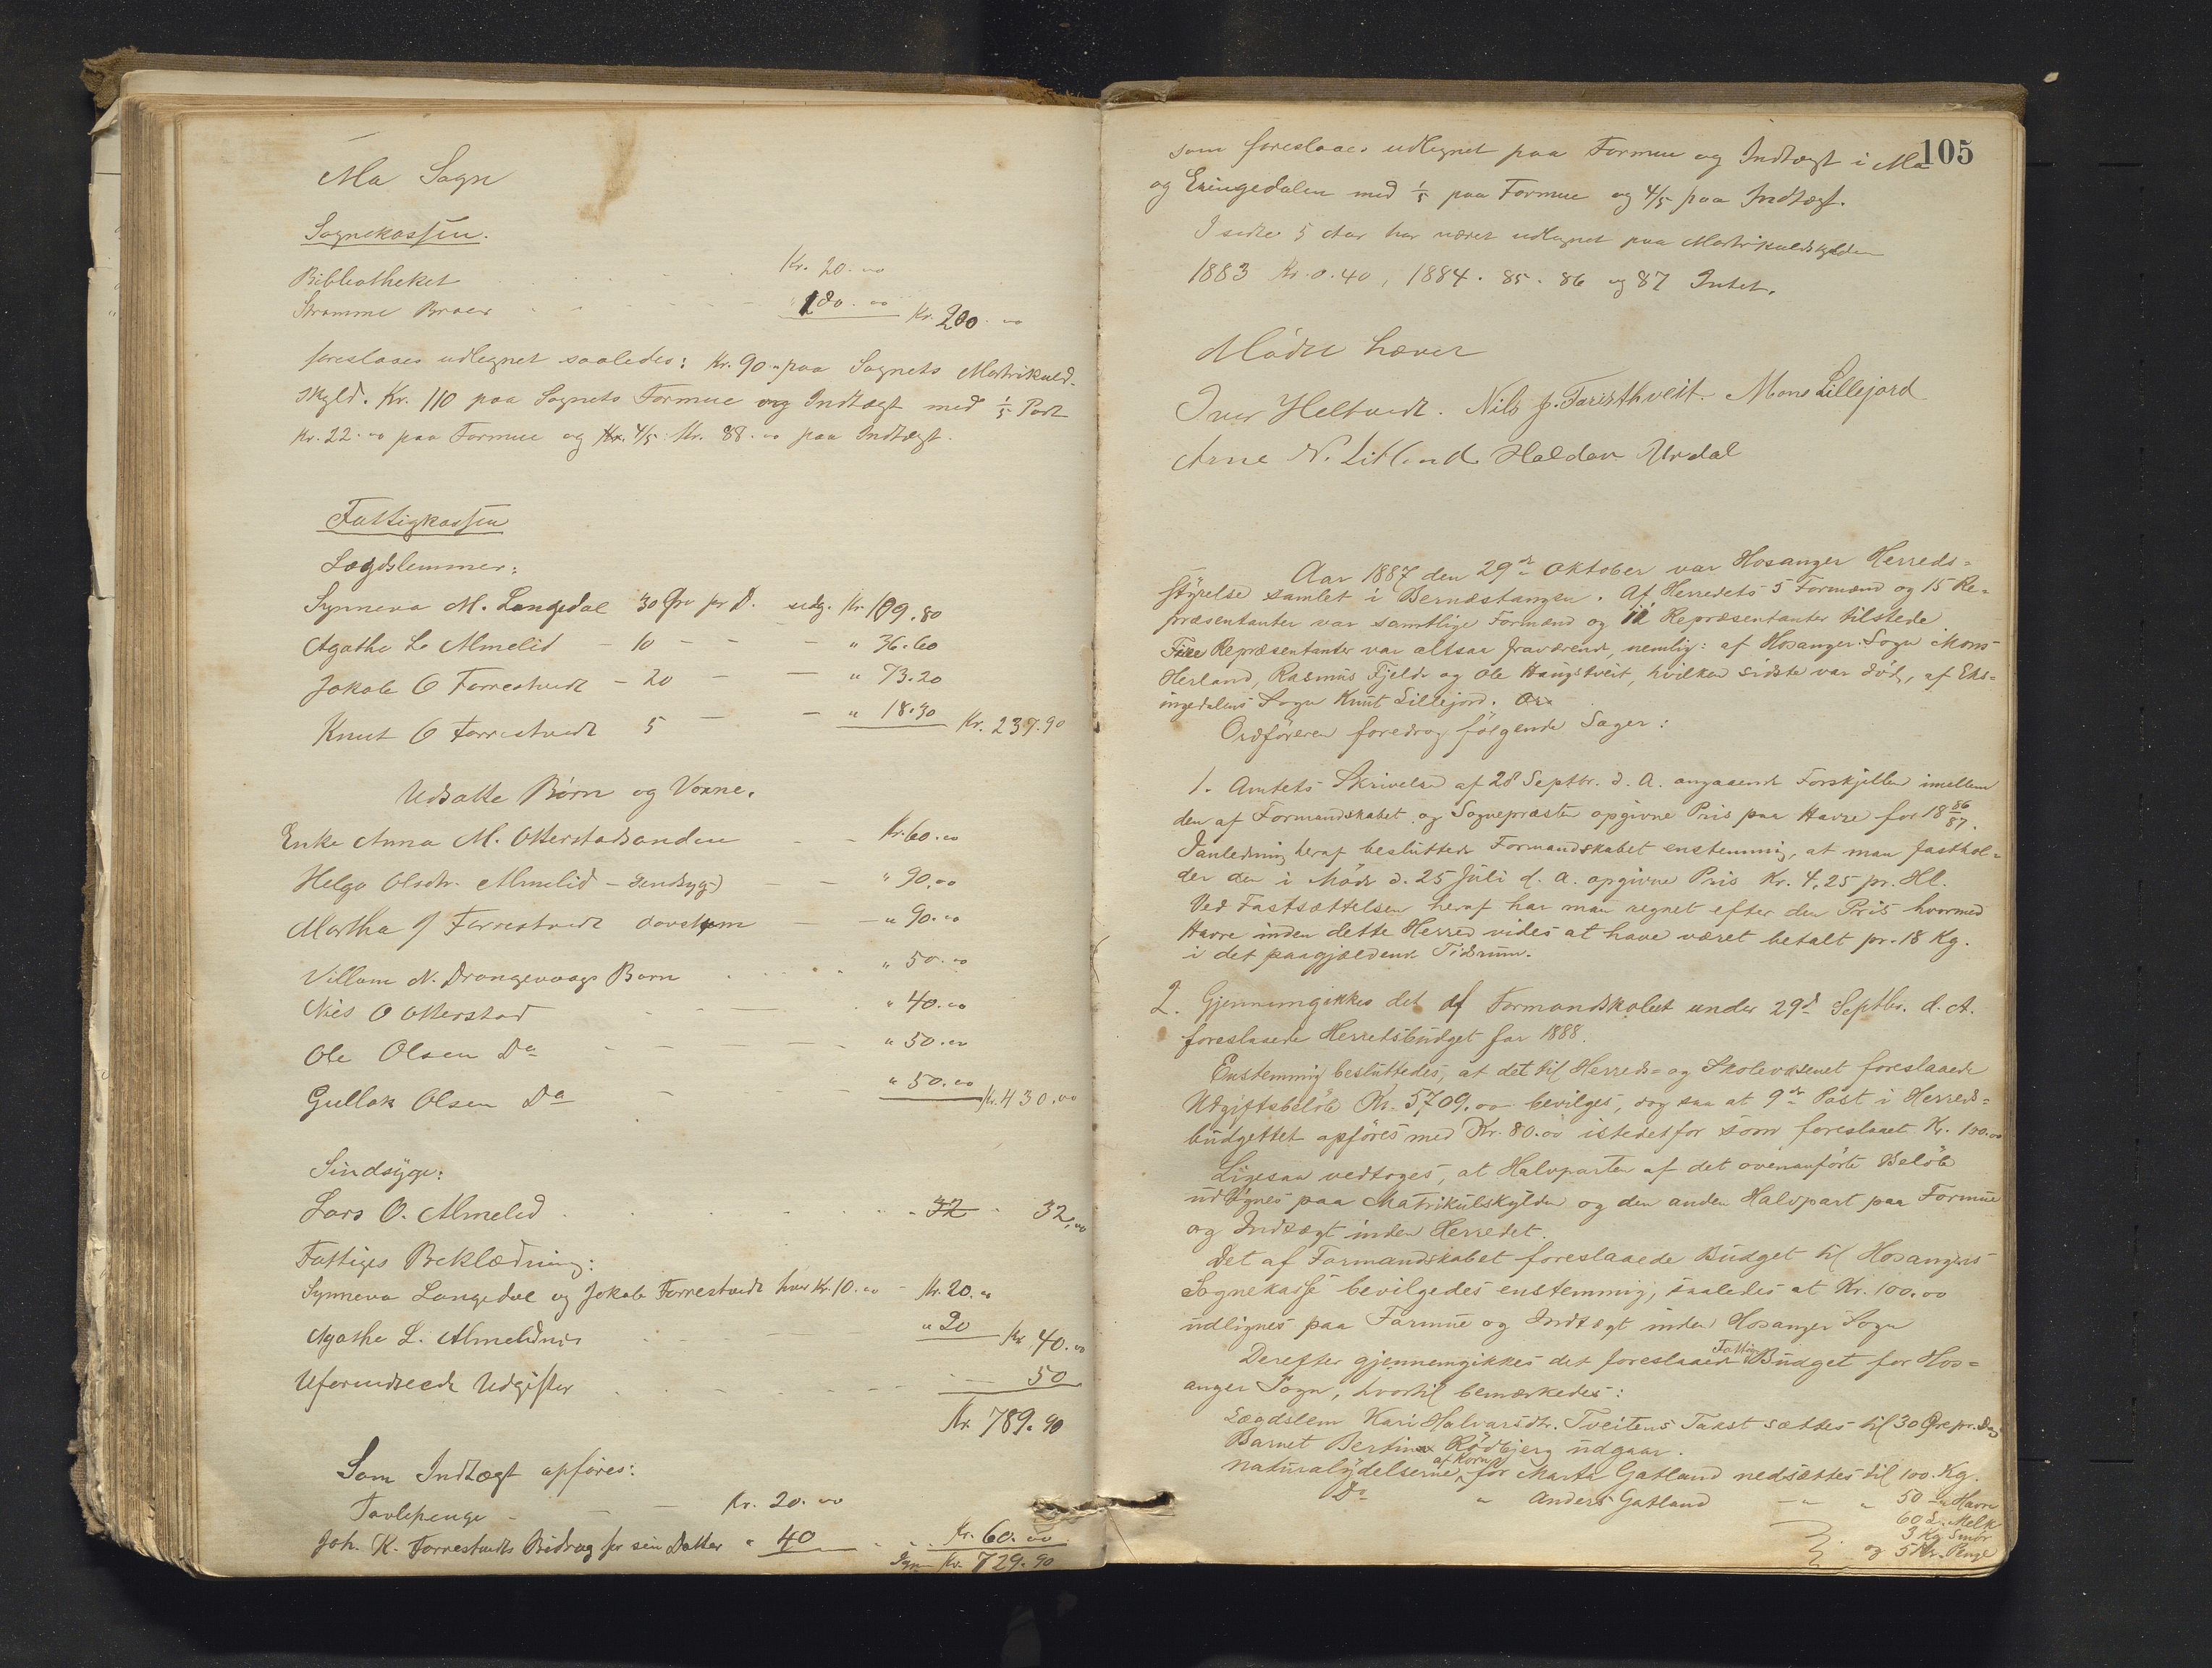 Ma Sogn
Sognekassen.
Bibliotheket Kr. 20.00
Stramme Broer " 180.00 Kr. 200.00
foreslaaes udlignet saaledes: Kr. 90.00 paa Sognets Matrikuls-
skyld. Kr. 110 paa Sognets Formue og Indtægt med 1/5 Part
Kr. 22.00 paa Formue og 4/5: Kr. 88.00 paa Indtægt.
Fattigkassen
Lægdslemmer:
Synneva M. Langedal 30 Øre pr D. udg. Kr 109.80
Agathe L. Almelid - 10 - - " 36.60
Jakob O Farrestvedt - 20 - - " 73.20
Knut O Farrestvedt 5 - - " 18.30 Kr. 237.90
Udsatte Børn og Voxne.
Enke Anna M. Otterstadsanden - - Kr. 60.00
Helga Olsdtr. Almelid - Sindsyg - - " 90.00
Martha J Farrestvedt døvstum - - " 90.00
Villum N. Drangevaags Barn " 50.00
Nils O Otterstad " 40.00
Ole Olsen Do " 50.00
Gullak Olsen Do " 50.00 Kr. 430.00
Sindsyge:
Lars O. Almelid 32 32,00
Fattiges Beklædning:
Synneva Langedal og Jakob Farrestvedt hver Kr. 10.00 - Kr. 20.00
Agathe L. Almelidnes " 20 Kr 40.00
Uforudseede Udgifter 50
Kr. 789.90
Som Indtægt opføres:
Tavlepenge - - Kr. 20.00
Joh. K. Farrestvedts Bidrag for sin Datter " 40 Kr. 60.00
Igjen Kr. 729.90
105
som foreslaaes udlignet paa Formue og Indtægt i Ma
og Exingedalen med 1/5 paa Formue og 4/5 paa Indtægt.
I sidste 5 Aar har været udlignet paa Matrikulskylden
1883 Kr. 0.40, 1884. 85. 86 og 87 Intet.
Mødet hævet
Iver Heltvedt. Nils J. Faresthveit. Mons Lillejord
Arne N. Litland Haldor Urdal
Aar 1887 den 29de Oktober var Hosanger Herreds=
styrelse samlet i Bernæstangen. Af Herredets 5 Formænd og 15 Re=
præsentanter var samtlige Formænd og 11 Repræsentanter tilstede
Fire Repræsentanter var altsaa fraværende, nemlig: af Hosanger Sogn Mons
Herland, Rasmus Fjelde og Ole Haugstveit, hvilken sidste var død, af Eks=
ingedalens Sogn Knut Lillejord.
Ordføreren foredrog følgende Sager:
1. Amtets Skrivelse af 28 Septbr. d. A. angaaende Forskjellen imellem
den af Formandskabet og Sognepræsten opgivne Pris paa Havre for 18 86/87.
Ianledning heraf besluttede Formandskabet enstemmig, at man fasthol=
der den i Møde d. 25 Juli d. A. opgivne Pris Kr. 4,25 pr. Hl.
Ved Fastsættelsen heraf har man regnet efter den Pris hvormed
Havre inden dette Herred vides at have været betalt pr. 18 Kg.
i det paagjældende Tidsrum.
2. Gjennemgikkes det af Formandskabet under 29de Septbr. d. A.
foreslaaede Herredsbudget for 1888.
Enstemmig besluttedes, at det til Herreds= og Skolevæsenet foreslaaede
Udgiftsbeløb Kr. 5709.00 bevilges, dog saa at 9de Post i Herreds=
budgettet opføres med Kr. 80.00 istedetfor som foreslaaet Kr. 100.00
Ligesaa vedtoges, at Halvparten af det ovenanførte Beløb
udlignes paa Matrikulskylden og den anden Halvpart paa Formue
og Indtægt inden Herredet.
Det af Formandskabet foreslaaede Budget til Hosangers
Sognekasse bevilgedes enstemmig, saaledes at Kr. 100.00
udlignes paa Formue og Indtægt inden Hosanger Sogn
Derefter gjennemgikkes det foreslaaede Fattig Budget for Hos=
anger Sogn, hvortil bemærkedes:
Lægdslem Kari Halvarsdtr. Tveitens Takst sættes til 30 Øre pr. Dag
Barnet Bertina Rødbjerg udgaar.
Naturalydelserne af Korn for Marta Gatland nedsættes til 100 Kg.
Do " Anders Gatland - " " 50 - " Havre
60 L. Melk
3 Kg Smør
og 5 Kr. Penge